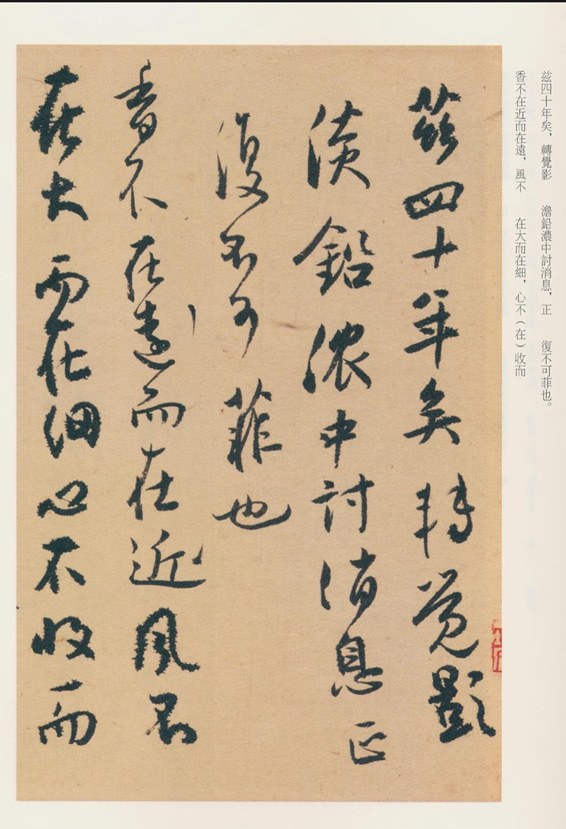 茲四十年矣，轉覺影　澹鉛濃中討消息，正　復不可菲也。
香不在近而在遠，風不　在大而在細，心不（在）收而
茲四十年矣轉覺影
淡鉛濃中討消息正
復不可菲也
香不在遠而在近風不
在大而在細心不收而